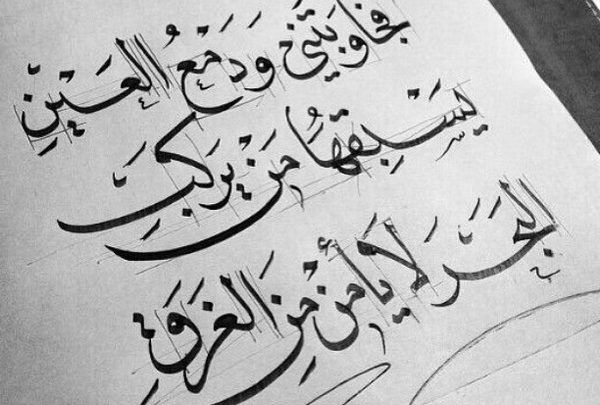 فجاوبتني ودَمْعُ العَيْنِ
يَسْبِقُهَا مَنْ يَركَبَ
البَحْرَ لَا يَأمن مِنَ الغَرَقِ